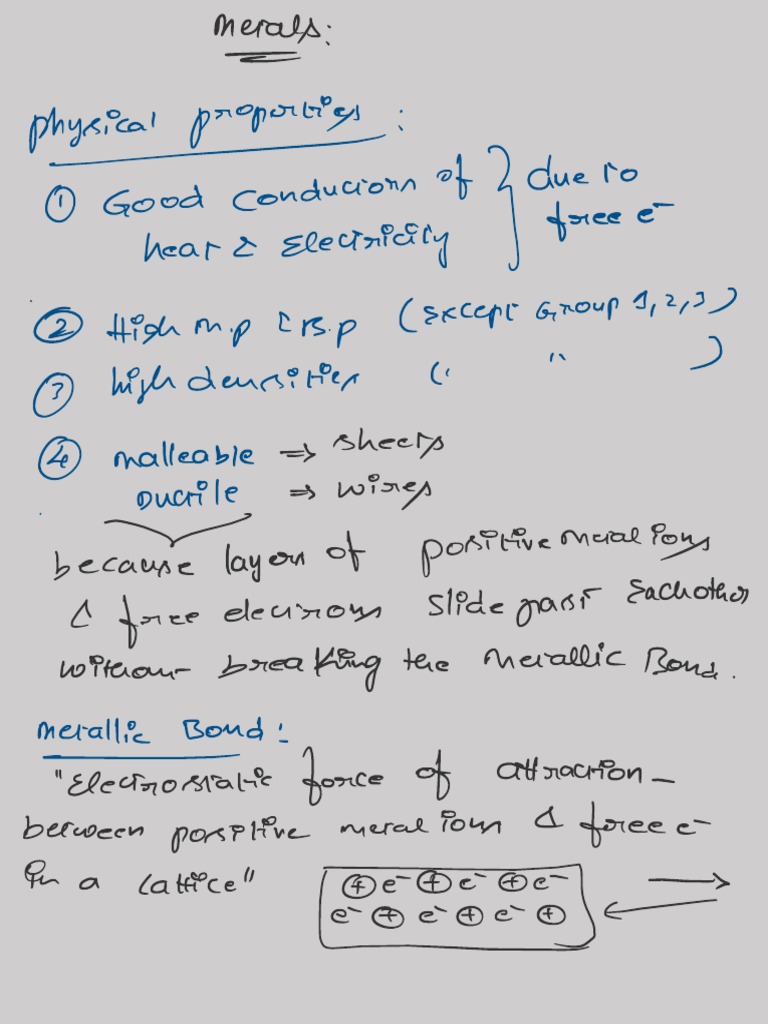 Metals:
Physical properties:
① Good conductors of } due to
heat & Electricity } free e⁻
② High m.p & B.p (Except Group 1,2,3)
③ high densities (" " )
④ malleable ⇒ sheets
Ductile ⇒ wires
because layers of positive metal ions
& free electrons slide past Each other
without breaking the Metallic Bond.
Metallic Bond:
"Electrostatic force of attraction
between positive metal ions & free e⁻
in a lattice"
⊕ e⁻ ⊕ e⁻ ⊕ e⁻ →
e⁻ ⊕ e⁻ ⊕ e⁻ ⊕ ←